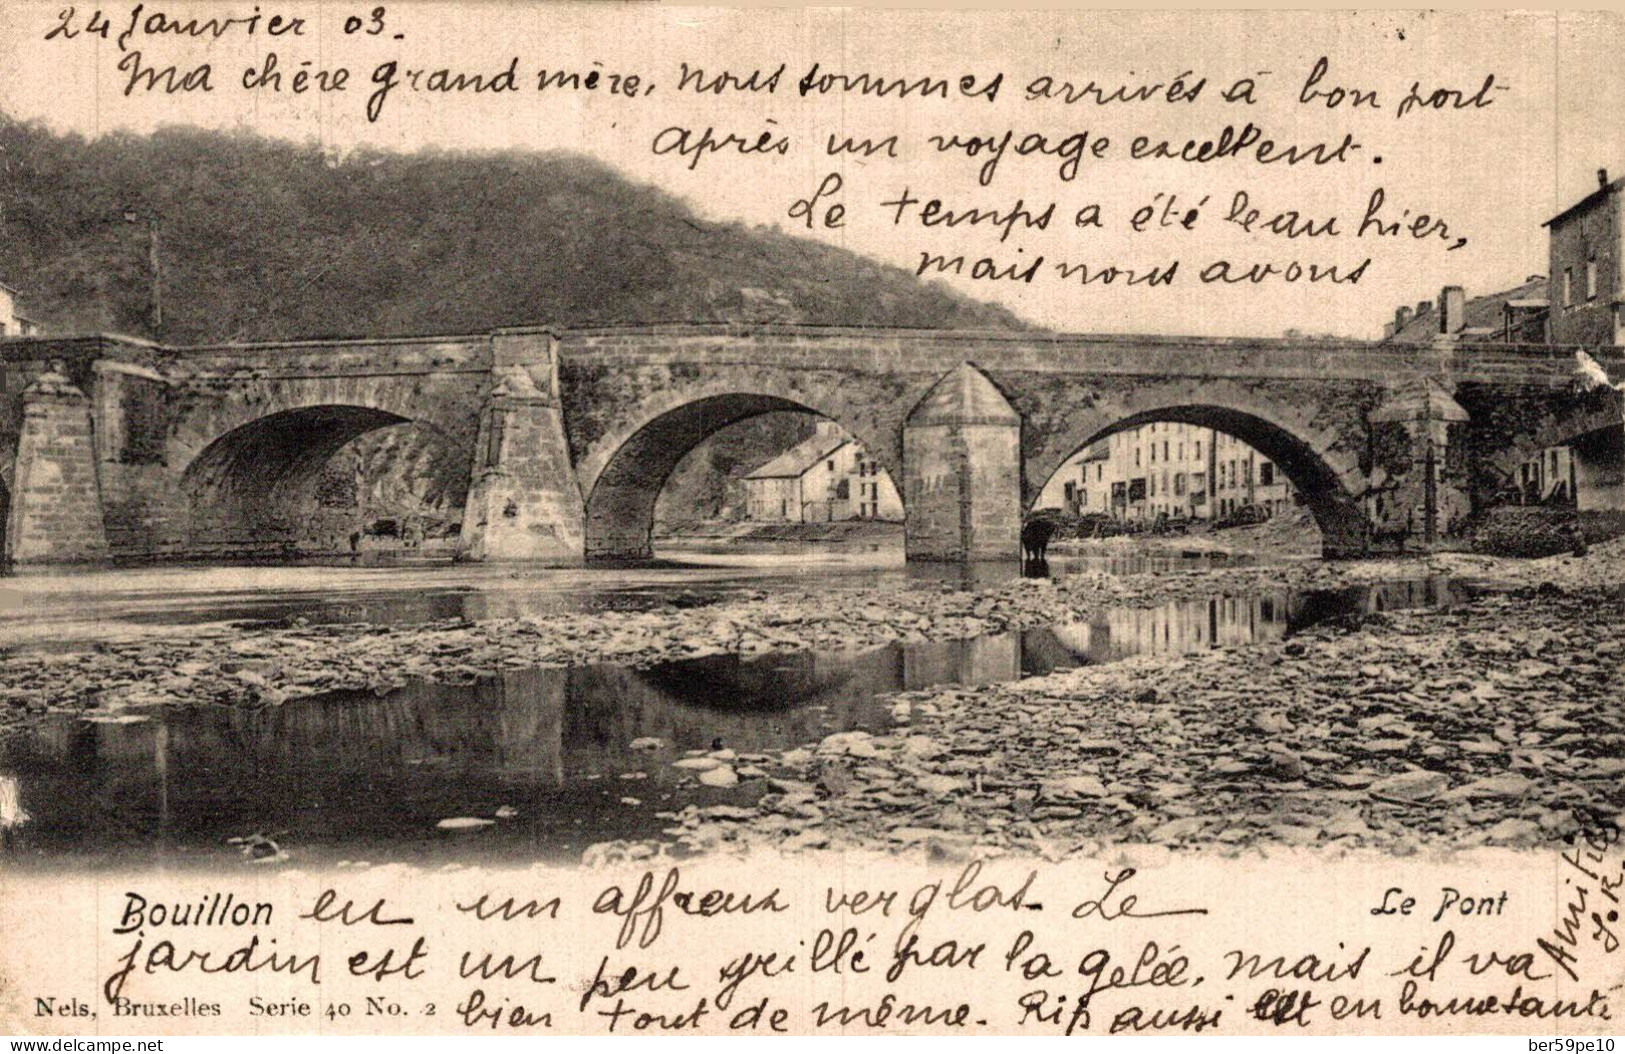 24 Janvier 03.
Ma chère grand mère, nous sommes arrivés à bon port
après un voyage excellent.
Le temps a été beau hier,
mais nous avons
Bouillon
eu un affreux verglas. Le
Le Pont
jardin est un peu grillé par la gelée, mais il va
bien tout de même. Rip aussi est en bonne santé
Amitiés
J.R.
Nels, Bruxelles Serie 40 No. 2
delcampe.net
ber59pe10